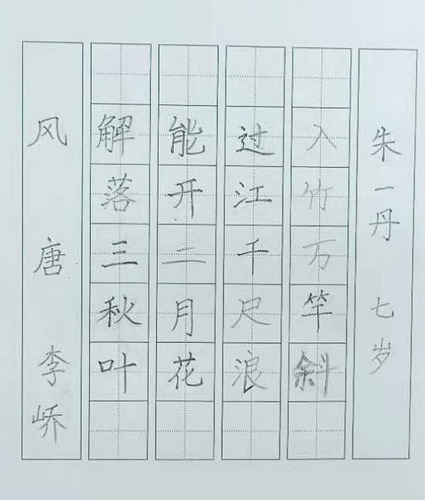 风 唐 李峤
解落三秋叶
能开二月花
过江千尺浪
入竹万竿斜
朱一丹 七岁